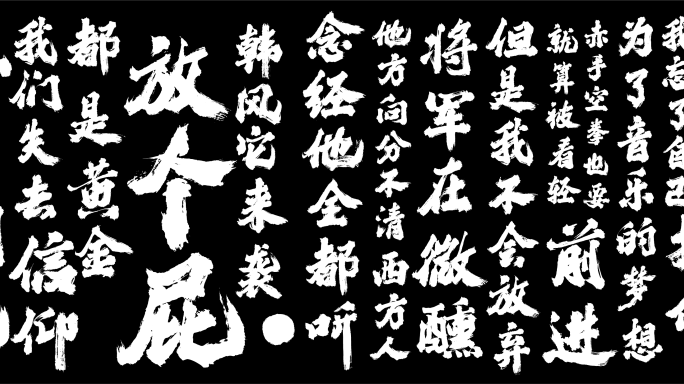 我忘了自
为了音乐的梦想
赤手空拳也要
就算被看轻
前进
但是我不会放弃
将军在微醺
他方向分不清西方人
念经他全都听
韩风它来袭
放个屁
都是黄金
我们失去信仰